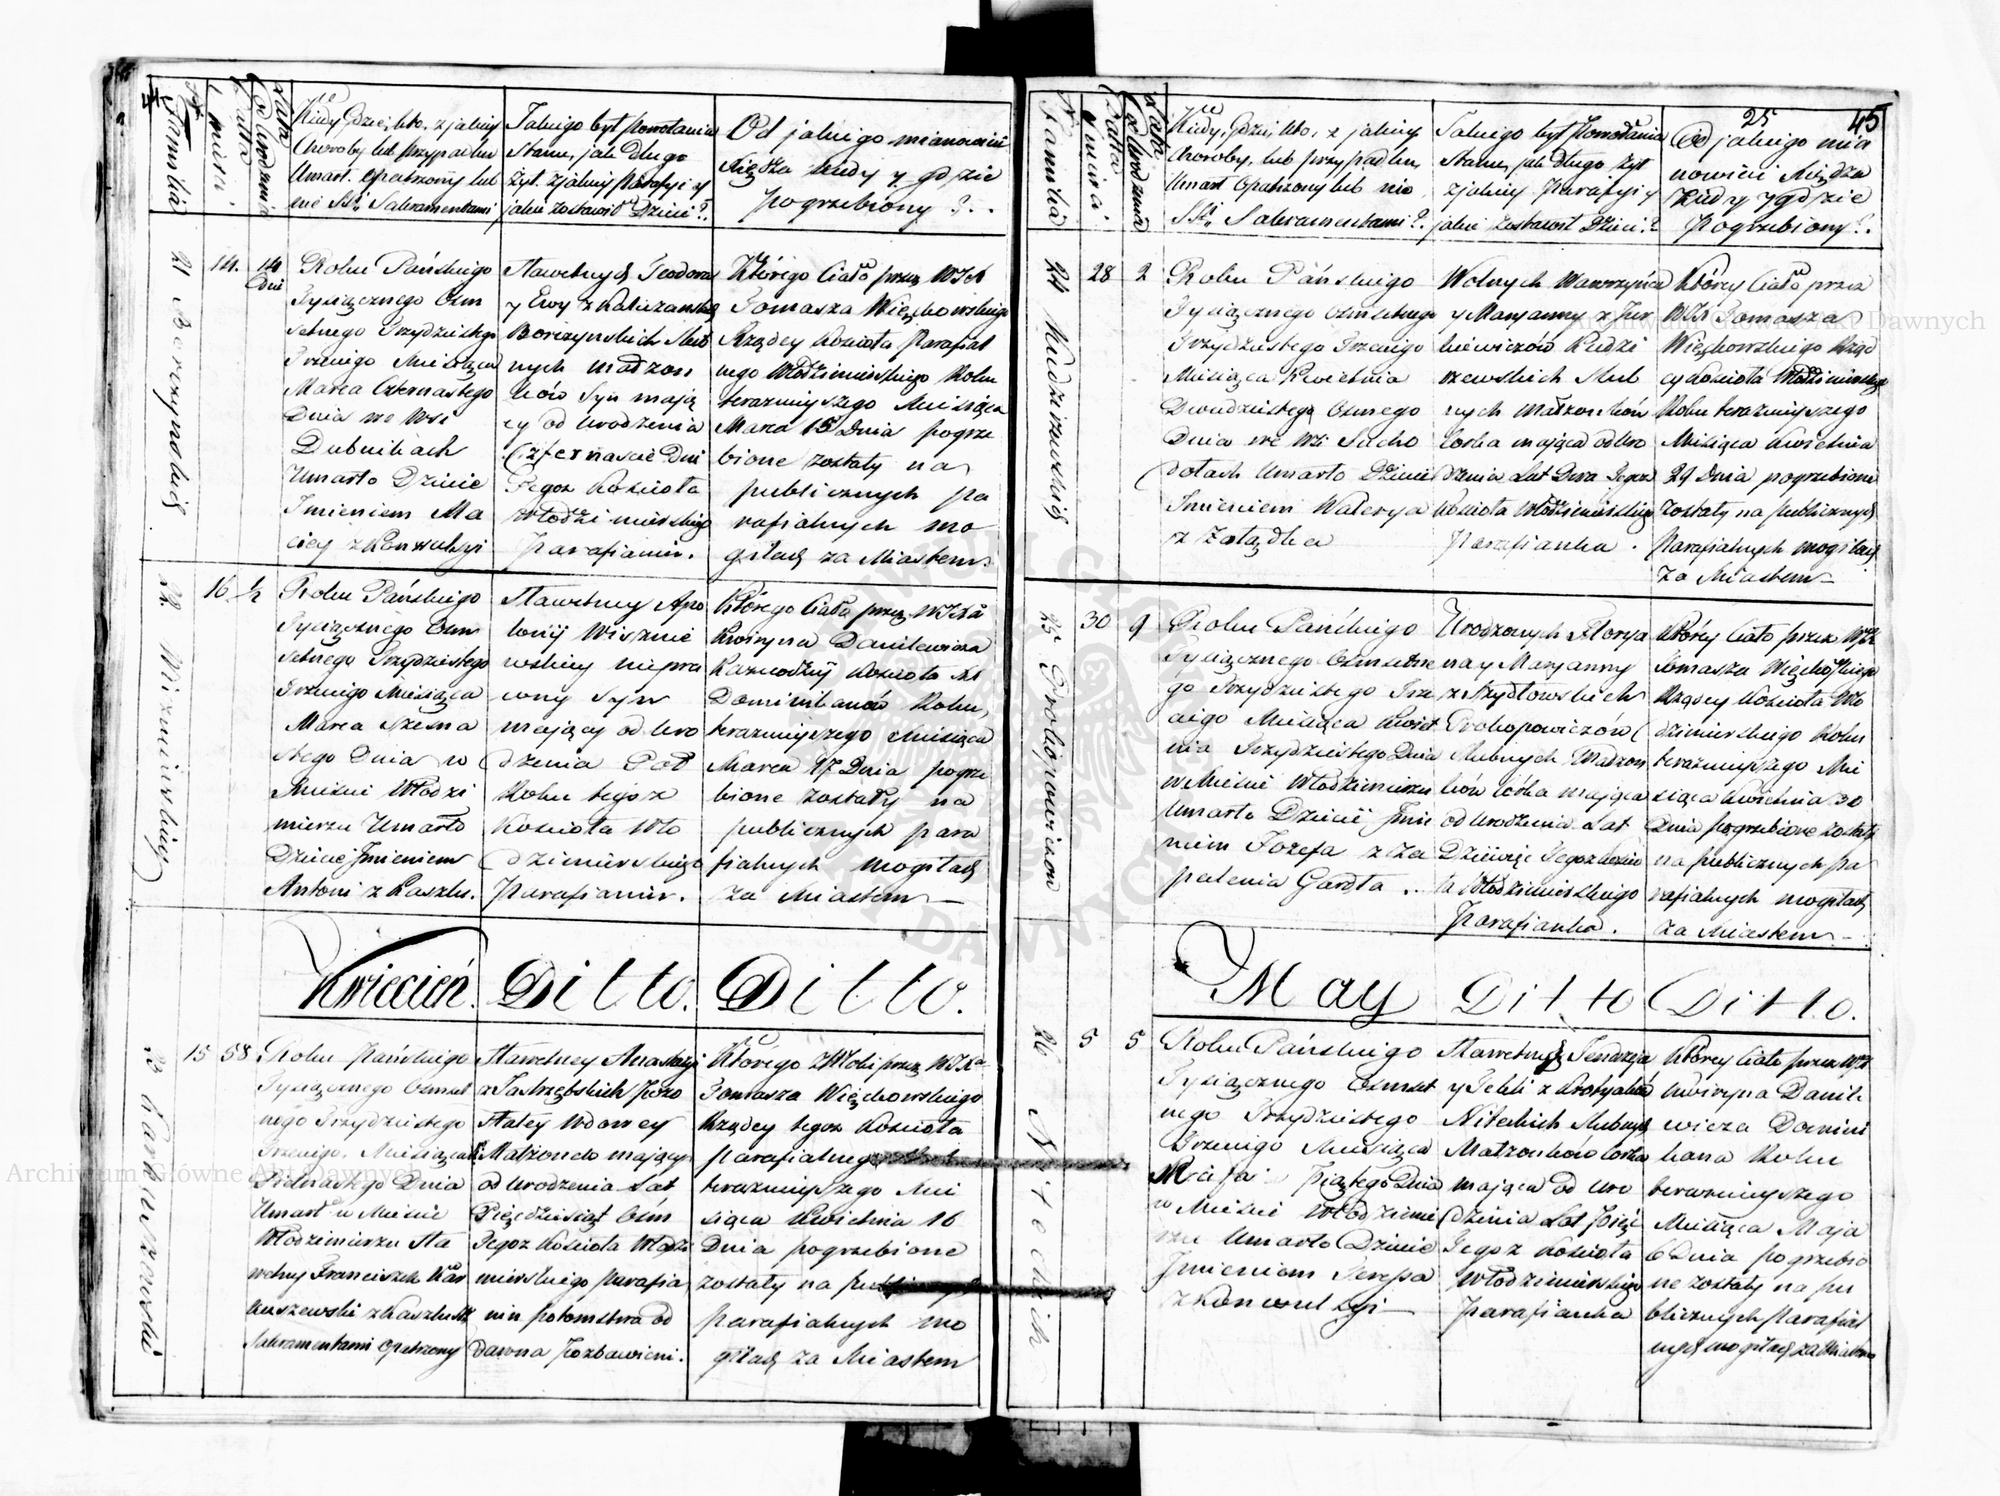 44
Familia
Lata od urodzenia
Kiedy, gdzie, kto, z jakiey
Choroby lub Przypadku
Umarł. opatrzony lub
nie SS. Sakramentami
Jakiego był Powołania
Stanu, jak Długo
żył. z jakiey Parafyi y
jakie zostawił Dzieci?.
Od jakiego mianowicie
Xiędza kiedy y gdzie
Pogrzebiony?..
21
14.
14 Dni
Roku Pańskiego
Tysiącznego Ośm
setnego Trzydziestego
Trzeciego Miesiąca
Marca Czternastego
Dnia we Wsi
Dubnikach
Umarło Dziecie
Imieniem Ma
ciey z Konwulsyi
Sławetnych Teodora
y Ewy z Kaliczanskich
Borczynskich Ślub
nych małżon
ków Syn mają
cy od urodzenia
Czternaście Dni
Tegoż Kościoła
Włodzimirskiego
Parafianin.
Którego Ciało przez WJX
Tomasza Więckowskiego
Rządcy Kościoła Parafial
nego Włodzimirskiego Roku
teraznieyszego Miesiąca
Marca 15 Dnia pogrze
bione zostały na
publicznych pa
rafialnych mo
giłach za Miastem
22
16
½
Roku Pańskiego
Tysiącznego Ośm
setnego Trzydziestego
Trzeciego Miesiąca
Marca Szesna
stego Dnia w
Mieście Włodzi
mierzu Umarło
Dziecie Imieniem
Antoni z Kaszlu.
Sławetney Apo
lonij Wisznie
wskiey niepra
wny Syn
mający od uro
dzenia Pół
Roku tegoż
Kościoła Wło
dzimirskiego
Parafianin.
Którego Ciało przez WJXa
Kwiryna Danilewicza
Kaznodzij Kościoła XX
Dominikanów Roku,
teraznieyszego Miesiąca
Marca 17 Dnia pogrze
bione zostały na
publicznych para
fialnych mogiłach
za Miastem
Kwiecień. Ditto. Ditto.
23
15
58
Roku Pańskiego
Tysiącznego Ośmset
nego Trzydziestego
Trzeciego, Miesiąca
Pietnastego Dnia
Umarł w Mieście
Włodzimierzu Sła
wetny Franciszek Kar
kuszewski z Kaszlu SS.
Sakramentami opatrzony
Sławetney Anastazyi
z Jastrzębskich pozo
stałey Wdowey
Małżonek mający
od Urodzenia Lat
Pięćdziesiąt Ośm
Tegoż Kościoła Włodzi
mirskiego Parafia
nin potomstwa od
dawna pozbawieni.
Którego Zwłoki przez WJXa
Tomasza Więckowskiego
Rządcy tegoż Kościoła
parafialnego
teraznieyszego Mie
siąca Kwietnia 16
Dnia pogrzebione
zostały na publicznych
parafialnych mo
giłach za Miastem
25 45
Familia
Lata od urodzenia
Kiedy, Gdzie, kto, z jakiey
Choroby, lub przypadku,
Umarł Opatrzony lub nie
SS. Sakramentami?.
Jakiego był Powołania
Stanu, jak długo żył
z jakiey Parafyi y
jakie zostawił Dzieci?
Od jakiego mia
nowicie Xiędza
kiedy y gdzie
Pogrzebiony?.
24
28
2
Roku Pańskiego
Tysiącznego Ośmsetnego
Trzydziestego Trzeciego
Miesiąca Kwietnia
Dwudziestego Osmego
Dnia we Wsi Sucho
dołach Umarło Dziecie
Imieniem Waleryа
z Żołądka
Wolnych Wawrzyńca
y Maryanny z Jur
kiewiczów Kudzi
rzewskich Ślub
nych małżonków
Corka mająca od uro
dzenia Lat Dwa Tegoż
Kościoła Włodzimirskiego
Parafianka.
Którey Ciało przez
WJX Tomasza
Więckowskiego Rząd
cy Kościoła Włodzimirskiego
Roku teraznieyszego
Miesiąca Kwietnia
29 Dnia pogrzebione
zostały na publicznych
parafialnych mogiłach
za Miastem
25 Prokopowiczow
30
9
Roku Pańskiego
Tysiącznego Ośmsetne
go Trzydziestego Trze
ciego Miesiąca Kwiet
nia Trzydziestego Dnia
w Mieście Włodzimierzu
Umarło Dziecie Imie
niem Jozefa z Za
palenia Gardła.
Urodzonych Florya
na y Maryanny
z Szydłowskich
Prokopowiczów
Ślubnych Małżon
ków Córka mająca
od Urodzenia Lat
Dziewięć Tegoż Kościo
ła Włodzimirskiego
Parafianka.
Którey Ciało przez WJX
Tomasza Więckowskiego
Rządcy Kościoła Wło
dzimirskiego Roku
teraznieyszego Mie
siąca Kwietnia 30
Dnia pogrzebione zostały
na publicznych pa
rafialnych mogiłach
za Miastem
May Ditto Ditto.
26 Niteckich
5
5
Roku Pańskiego
Tysiącznego Ośmset
nego Trzydziestego
Trzeciego Miesiąca
Maja Piątego Dnia
w Mieście Włodzimie
rzu Umarło Dziecie
Imieniem Teresa
z Konwulsyi
y Tekli z
Niteckich Ślubnych
Małżonków Corka
mająca od uro
dzenia Lat Pięć
Tegoż Kościoła
Włodzimirskiego
Parafianka
Którey Ciało przez WJX
Kwiryna Danile
wicza Domini
kana Roku
teraznieyszego
Miesiąca Maja
6 Dnia pogrzebio
ne zostały na pu
blicznych Parafial
nych mogiłach za Miastem
Archiwum Główne Akt Dawnych
Archiwum Główne Akt Dawnych